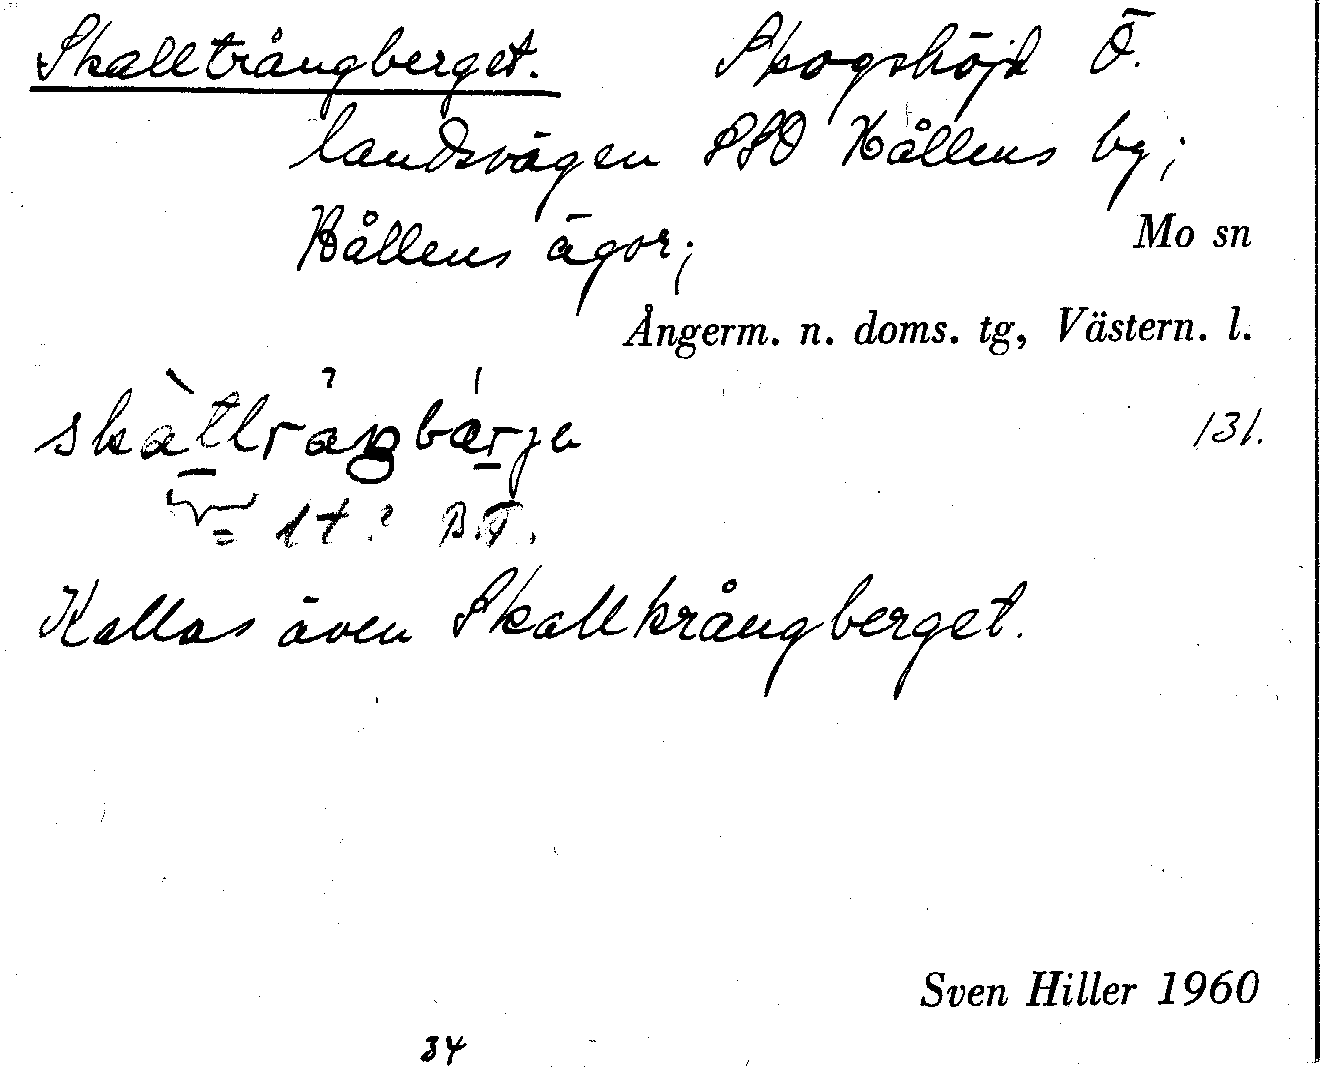 Skalltrångberget. Skogshöjd Ö.
landsvägen SSO Hållens by;
Hållens ägor; Mo sn
Ångerm. n. doms. tg, Västern. l.
131.
lt? B.T.
Kallas även Skallkrångberget.
Sven Hiller 1960
34